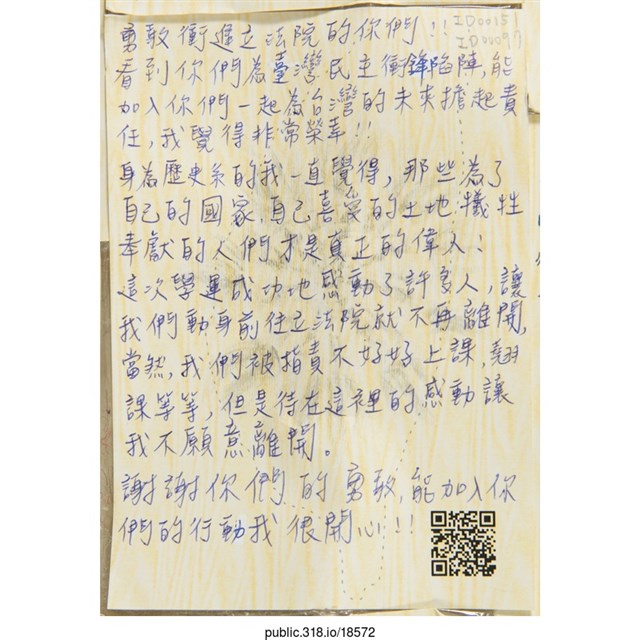 勇敢衝進立法院的你們!!
ID00151
ID00097
看到你們為臺灣民主衝鋒陷陣,能
加入你們一起為台灣的未來擔起責
任,我覺得非常榮幸!!
身為歷史系的我一直覺得,那些為了
自己的國家,自己喜愛的土地犧牲
奉獻的人們才是真正的偉人!
這次學運成功地感動了許多人,讓
我們動身前往立法院就不再離開,
當然,我們被指責不好好上課,翹
課等等,但是待在這裡的感動讓
我不願意離開。
謝謝你們的勇敢,能加入你
們的行動我很開心!!
public.318.io/18572